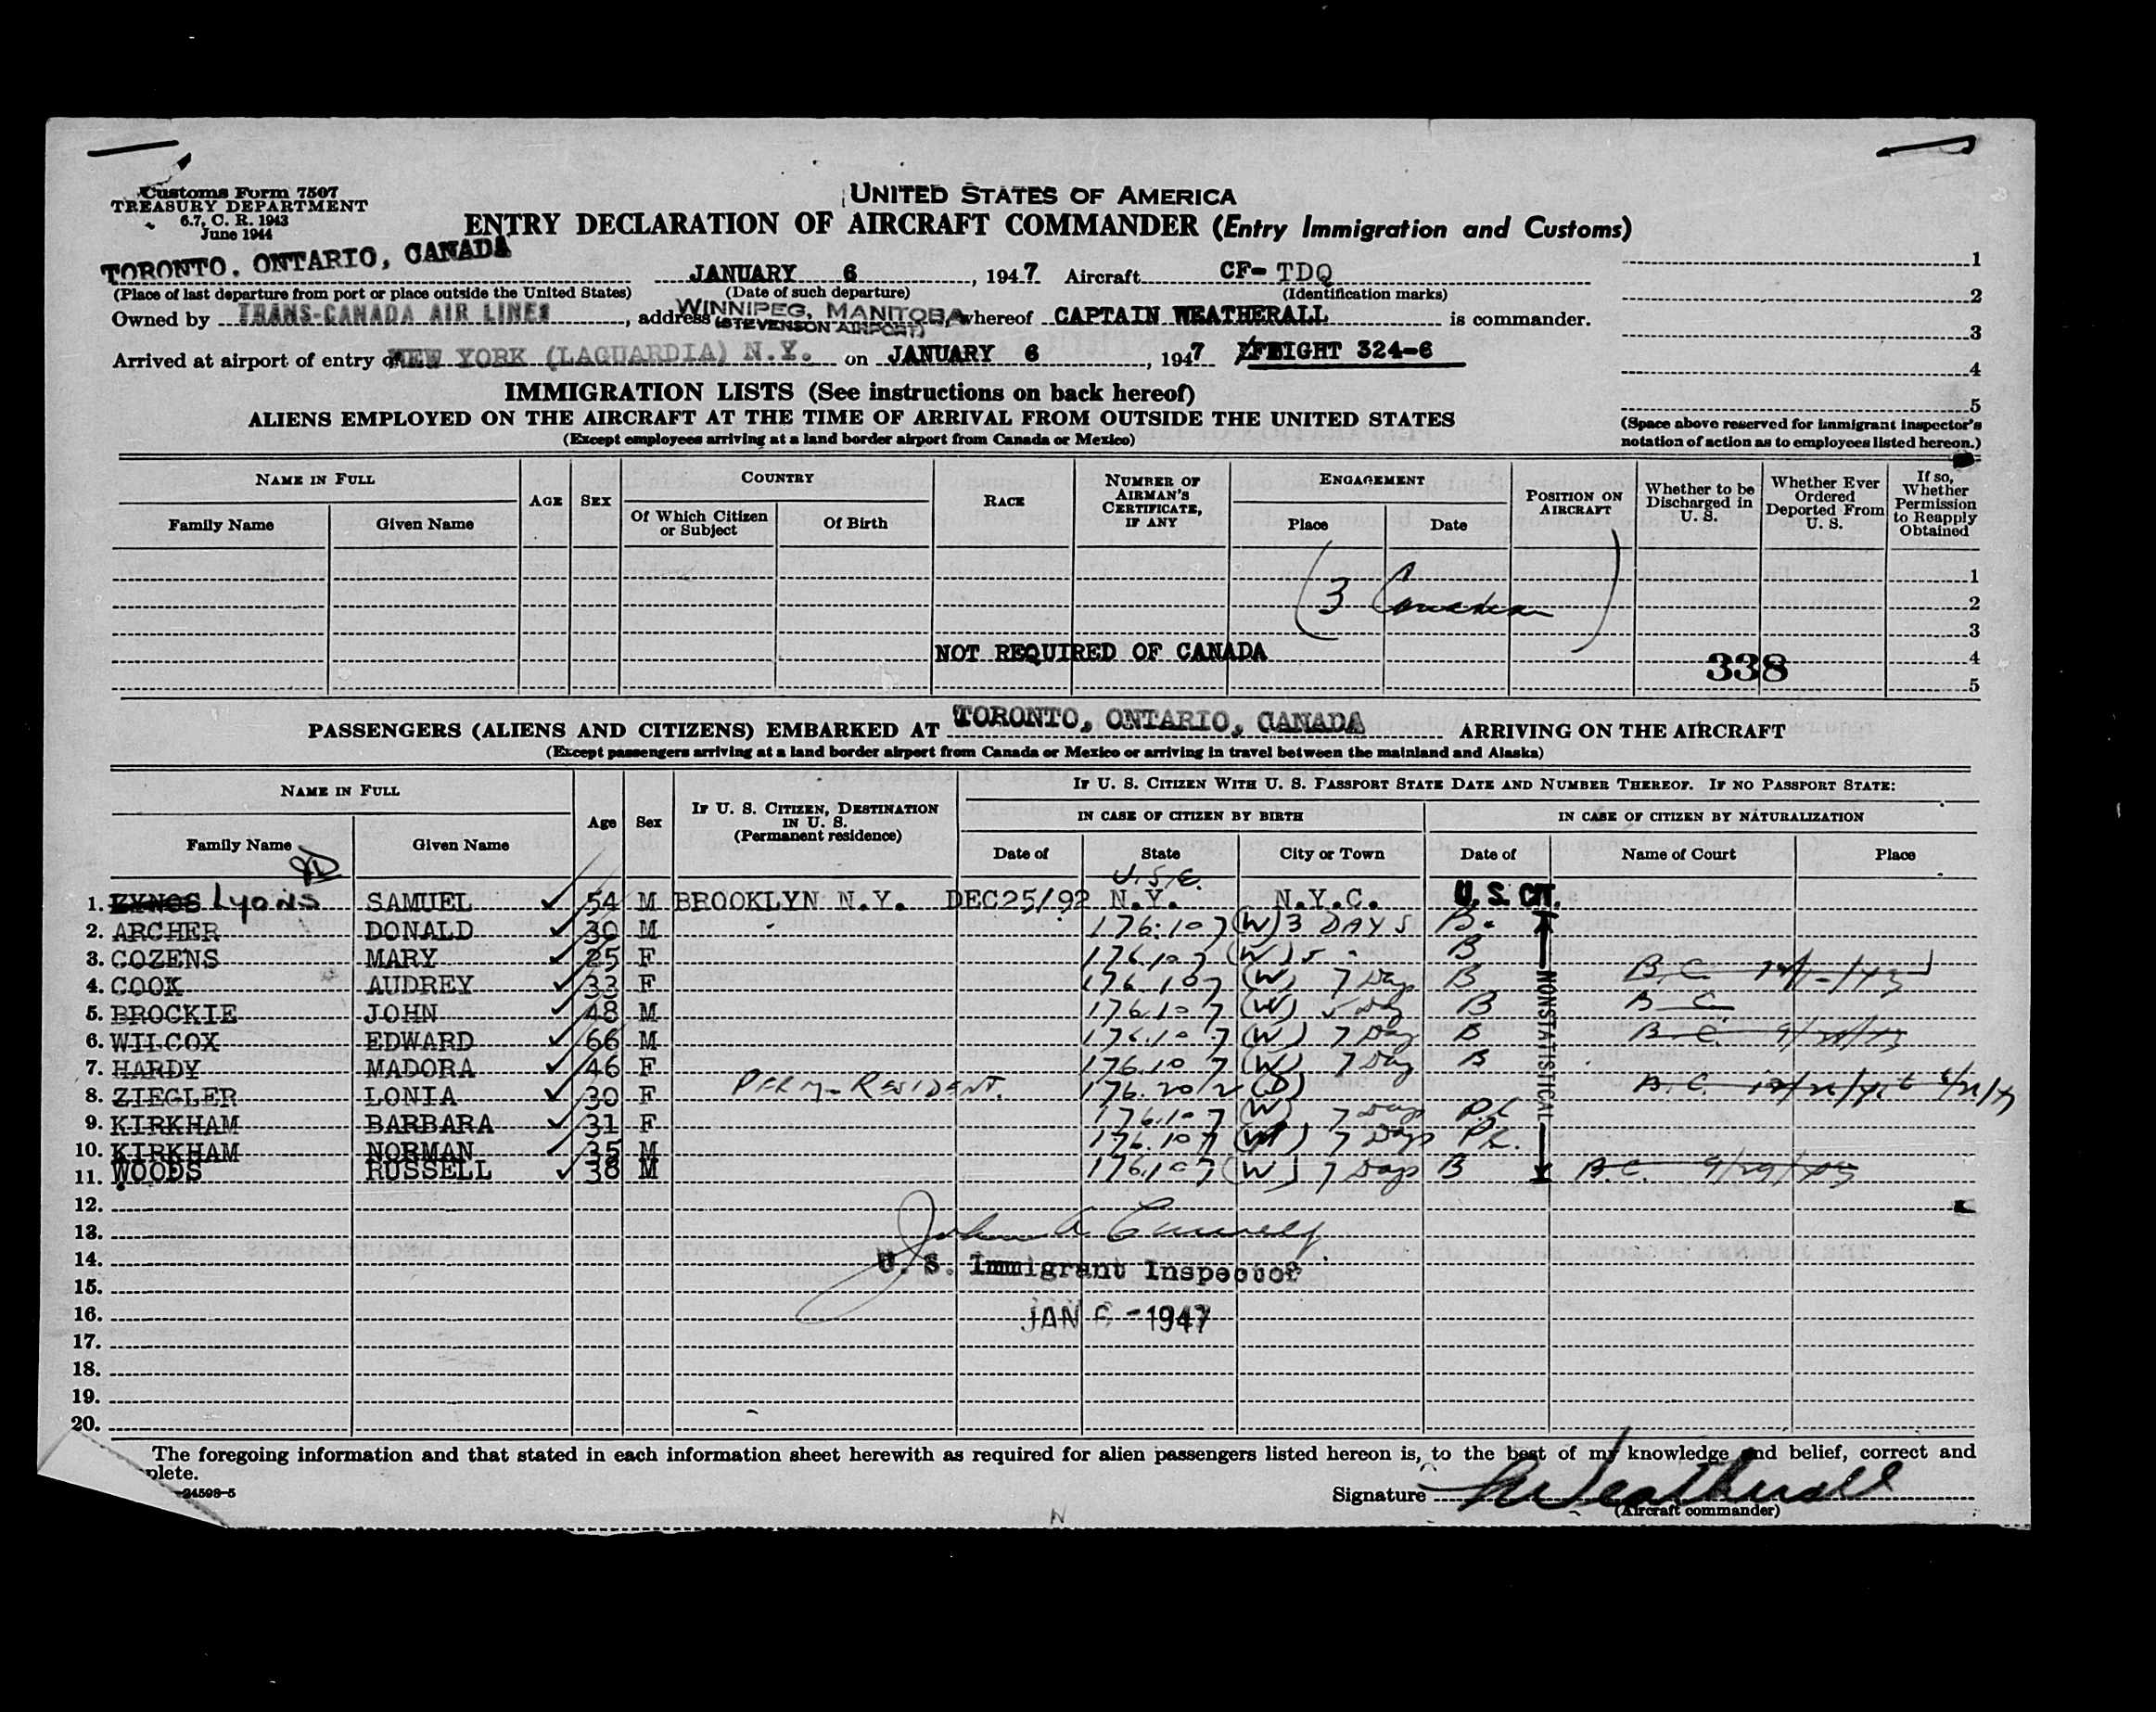 Customs Form 7507
TREASURY DEPARTMENT
6.7, C. R. 1943
June 1944
UNITED STATES OF AMERICA
ENTRY DECLARATION OF AIRCRAFT COMMANDER (Entry Immigration and Customs)
TORONTO, ONTARIO, CANADA JANUARY 6, 1947 Aircraft CF-TDQ
(Place of last departure from port or place outside the United States) (Date of such departure) (Identification marks)
Owned by TRANS-CANADA AIR LINES, address WINNIPEG, MANITOBA (STEVENSON AIRPORT), whereof CAPTAIN WEATHERALL is commander.
Arrived at airport of entry of NEW YORK (LAGUARDIA) N.Y. on JANUARY 6, 1947 324-6
1
2
3
4
5
(Space above reserved for immigrant inspector's notation of action as to employees listed hereon.)
IMMIGRATION LISTS (See instructions on back hereof)
ALIENS EMPLOYED ON THE AIRCRAFT AT THE TIME OF ARRIVAL FROM OUTSIDE THE UNITED STATES
(Except employees arriving at a land border airport from Canada or Mexico)
NAME IN FULL AGE SEX COUNTRY RACE NUMBER OF AIRMAN'S CERTIFICATE, IF ANY ENGAGEMENT POSITION ON AIRCRAFT Whether to be Discharged in U. S. Whether Ever Ordered Deported From U. S. If so, Whether Permission to Reapply Obtained
Family Name Given Name Of Which Citizen or Subject Of Birth Place Date
1
(3 Canadian) 2
3
NOT REQUIRED OF CANADA 338 4
5
PASSENGERS (ALIENS AND CITIZENS) EMBARKED AT TORONTO, ONTARIO, CANADA ARRIVING ON THE AIRCRAFT
(Except passengers arriving at a land border airport from Canada or Mexico or arriving in travel between the mainland and Alaska)
NAME IN FULL Age Sex IF U. S. CITIZEN, DESTINATION IN U. S. (Permanent residence) IF U. S. CITIZEN WITH U. S. PASSPORT STATE DATE AND NUMBER THEREOF. IF NO PASSPORT STATE:
IN CASE OF CITIZEN BY BIRTH IN CASE OF CITIZEN BY NATURALIZATION
Family Name Given Name Date of State City or Town Date of Name of Court Place
1. Lyons SAMUEL 54 M BROOKLYN N.Y. DEC25/92 N.Y. N.Y.C. U.S. CIT.
2. ARCHER DONALD 30 M 176.107 (W) 3 DAYS B.
3. COZENS MARY 25 F 176.107 (W) 5 " B
4. COOK AUDREY 33 F 176.107 (W) 7 Days B B.C.
5. BROCKIE JOHN 48 M 176.107 (W) 5 Day B B C
6. WILCOX EDWARD 66 M 176.107 (W) 7 Day B B.C.
7. HARDY MADORA 46 F 176.107 (W) 7 Day B
8. ZIEGLER LONIA 30 F PERM-RESIDENT. 176.202 (D) B.C.
9. KIRKHAM BARBARA 31 F 176.107 (W) 7 Days P.L
10. KIRKHAM NORMAN 35 M 176.107 (W) 7 Days P.L.
11. WOODS RUSSELL 38 M 176.107 (W) 7 Days B B.C. 9/29/
NONSTATISTICAL
12.
13.
14. U. S. Immigrant Inspector
15.
16. JAN 6 - 1947
17.
18.
19.
20.
The foregoing information and that stated in each information sheet herewith as required for alien passengers listed hereon is, to the best of my knowledge and belief, correct and
plete.
24598-5
Signature Weatherall
(Aircraft commander)